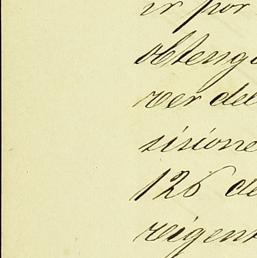 ir por
obteng
ver del
sisione
126 de
vigent